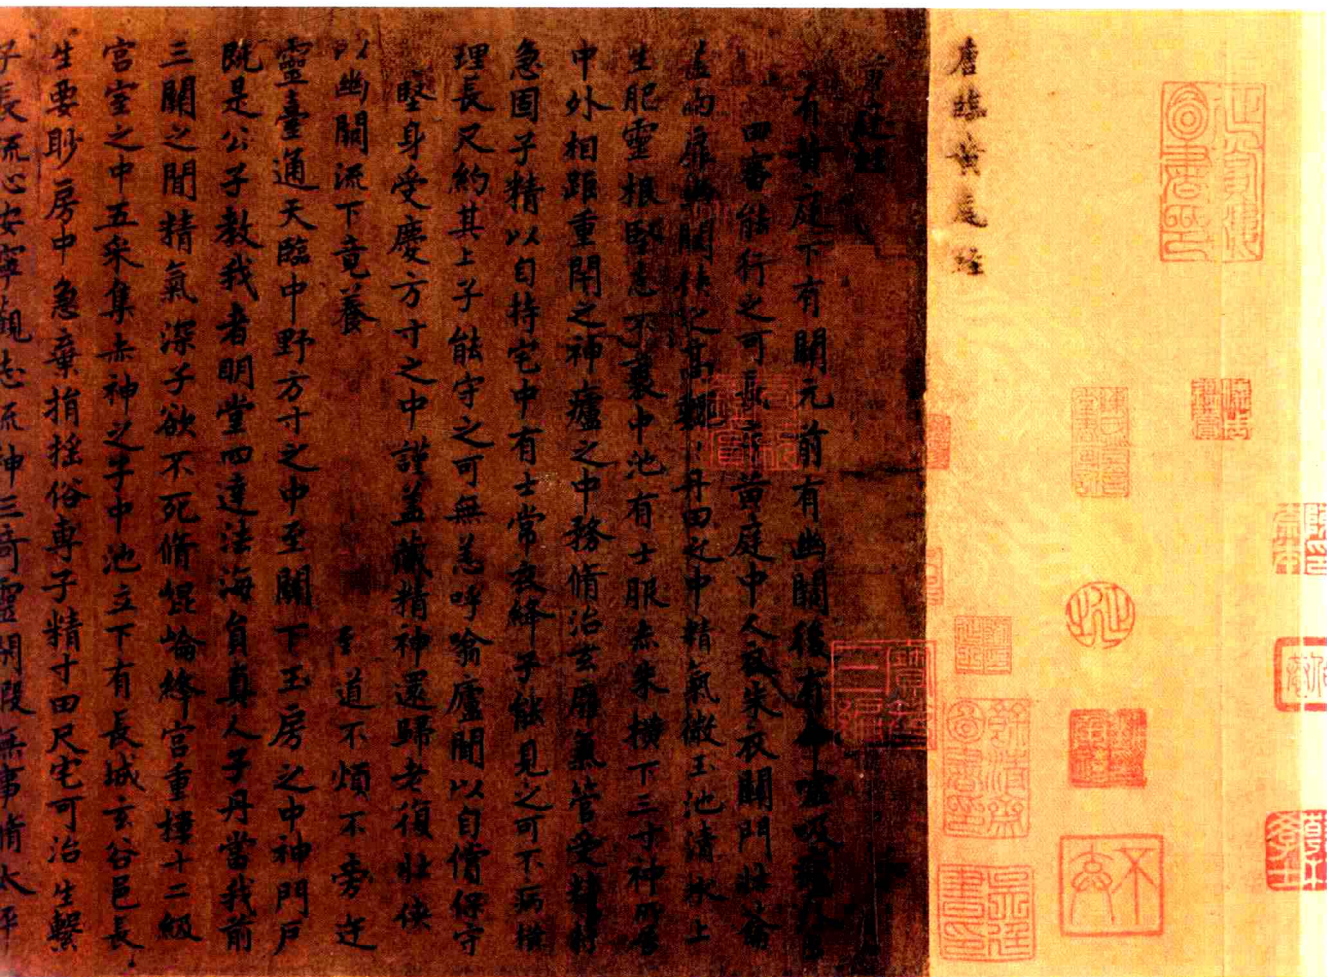 唐臨黃庭經
黃庭經
有黃庭下有關元前有幽闕後有命噓吸廬
田審能行之可長存黃庭中人衣朱衣關門壯籥
盖兩扉幽闕俠之高巍巍丹田之中精氣微玉池清水上
生肥靈根堅志不衰中池有士服赤朱橫下三寸神所居
中外相距重閇之神廬之中務脩治玄膺氣管受精符
急固子精以自持宅中有士常衣絳子能見之可不病橫
理長尺約其上子能守之可無恙呼噏廬間以自償保守
堅身受慶方寸之中謹盖藏精神還歸老復壯俠
以幽闕流下竟養 至道不煩不旁迕
靈臺通天臨中野方寸之中至關下玉房之中神門戶
既是公子教我者明堂四達法海負真人子丹當我前
三關之間精氣深子欲不死脩崐崘絳宮重樓十二級
宮室之中五采集赤神之子中池立下有長城玄谷邑長
生要眇房中急棄捐搖俗專子精寸田尺宅可治生繫
子長流心安寧觀志流神三奇靈閑暇無事脩太平